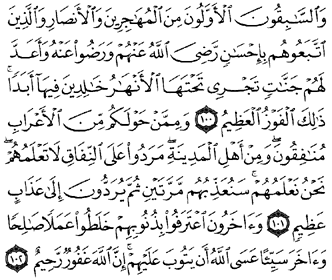 وَٱلسَّٰبِقُونَ ٱلْأَوَّلُونَ مِنَ ٱلْمُهَٰجِرِينَ وَٱلْأَنصَارِ وَٱلَّذِينَ
ٱتَّبَعُوهُم بِإِحْسَٰنٍ رَّضِىَ ٱللَّهُ عَنْهُمْ وَرَضُوا۟ عَنْهُ وَأَعَدَّ
لَهُمْ جَنَّٰتٍ تَجْرِى تَحْتَهَا ٱلْأَنْهَٰرُ خَٰلِدِينَ فِيهَآ أَبَدًا ۚ
ذَٰلِكَ ٱلْفَوْزُ ٱلْعَظِيمُ ١٠٠ وَمِمَّنْ حَوْلَكُم مِّنَ ٱلْأَعْرَابِ
مُنَٰفِقُونَ ۖ وَمِنْ أَهْلِ ٱلْمَدِينَةِ ۖ مَرَدُوا۟ عَلَى ٱلنِّفَاقِ لَا تَعْلَمُهُمْ ۖ
نَحْنُ نَعْلَمُهُمْ ۚ سَنُعَذِّبُهُم مَّرَّتَيْنِ ثُمَّ يُرَدُّونَ إِلَىٰ عَذَابٍ
عَظِيمٍ ١٠١ وَءَاخَرُونَ ٱعْتَرَفُوا۟ بِذُنُوبِهِمْ خَلَطُوا۟ عَمَلًا صَٰلِحًا
وَءَاخَرَ سَيِّئًا عَسَى ٱللَّهُ أَن يَتُوبَ عَلَيْهِمْ ۚ إِنَّ ٱللَّهَ غَفُورٌ رَّحِيمٌ ١٠٢